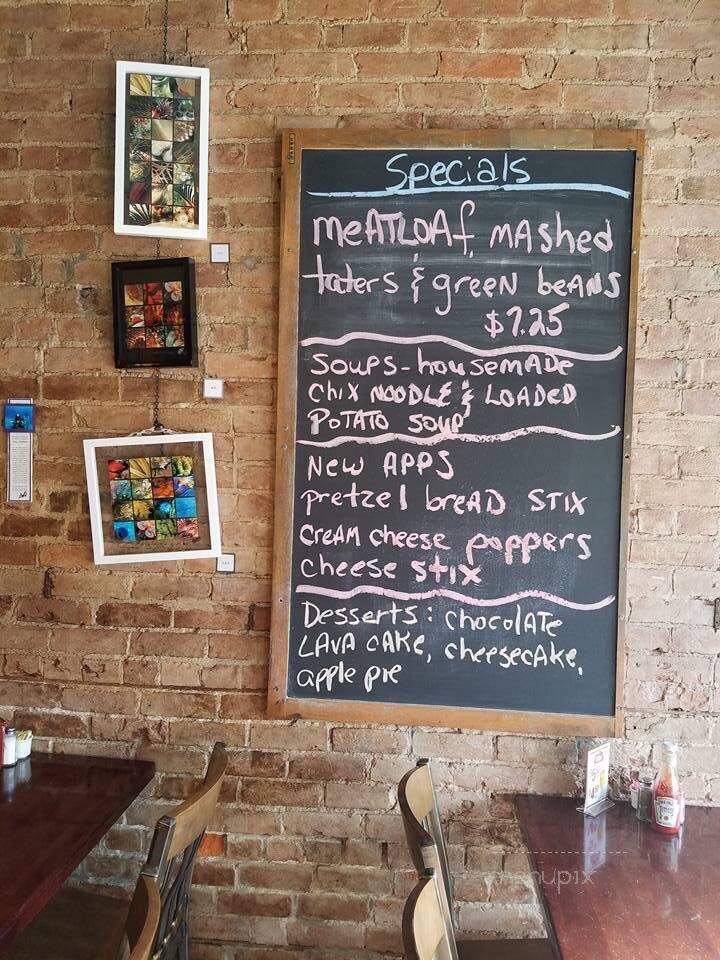 Specials
meATLOAf, mAshed
taters & greeN beANS
$7.25
Soups - housemade
Chix NOODLE & LOADED
POTATO SOUP
New APPS
pretzel breAD STIX
CreAm cheese poppers
cheese stix
Desserts: chocolATe
LAVA cAKe, cheesecAke,
apple pie
HEINZ
menupix